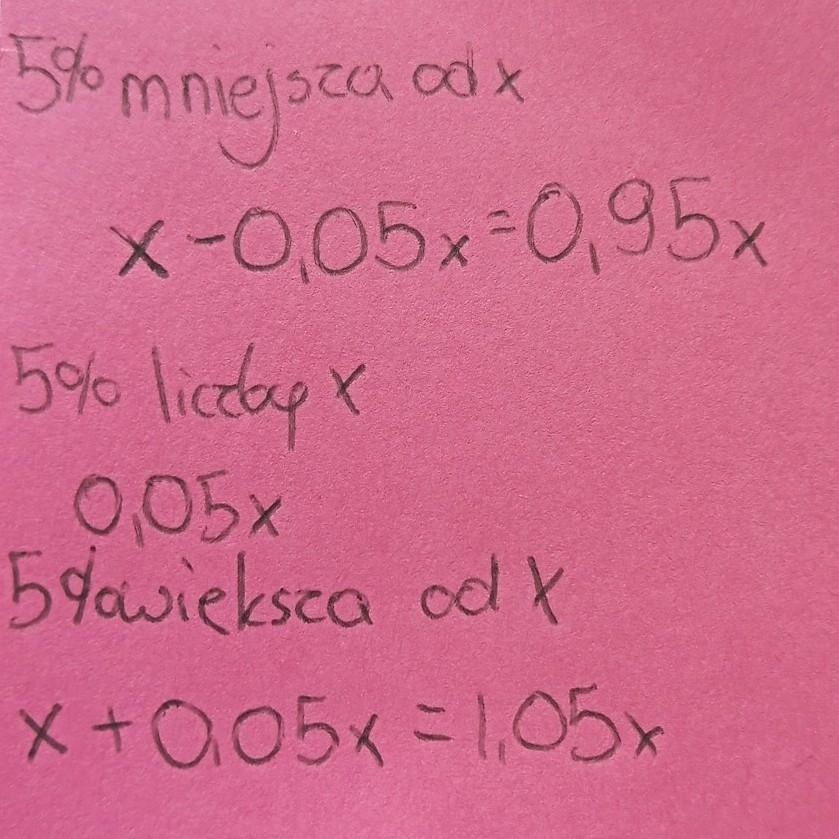 5% mniejsza od x
x - 0,05x = 0,95x
5% liczby x
0,05x
5% większa od x
x + 0,05x = 1,05x